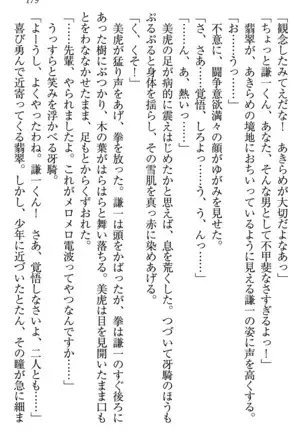 179
観念したみてえだな！　あきらめが大切だよなあっ」
「ちょっと謙一くん、あなた、そんな男として不甲斐なさすぎるようっ！」
翡翠が、あきらめの境地におちいっているように見える謙一の姿に声を高める。
「お……うっ……」
不意に、闘争意欲満々の顔がゆがみを見せた。
「さあ……っ、覚悟、しろようっ……う、う、んっ……」
「……ん、あ、熱いっ……」
ぷるぷると身体を病的に震えはじめたかと思えば、息を荒くした。つづいて冴騎のほうも
身体を揺らし、その雪肌を真っ赤に染めあげる。
「く、くそ！」
美虎が猛り声をあげ、拳を放った。謙一は頭をかばったが、拳は謙一のすぐ後ろに
あった樹にぶつかり、木の葉がはらはらと舞い落ちる。美虎は目を見開いたまま口も
とをわななかせたまま、足もとからくずおれた。
「……先輩、やられましたよ。これがメロメロ電波ってやつなんですか……」
うっすらと笑みを浮かべる冴騎。
「よーうし、よくやったわね。謙一くん！　さあ、覚悟しなさいよ、二人とも……」
喜び勇んで近寄ってくる翡翠。しかし、少年に近づいたとたん、その瞳が急に細ま